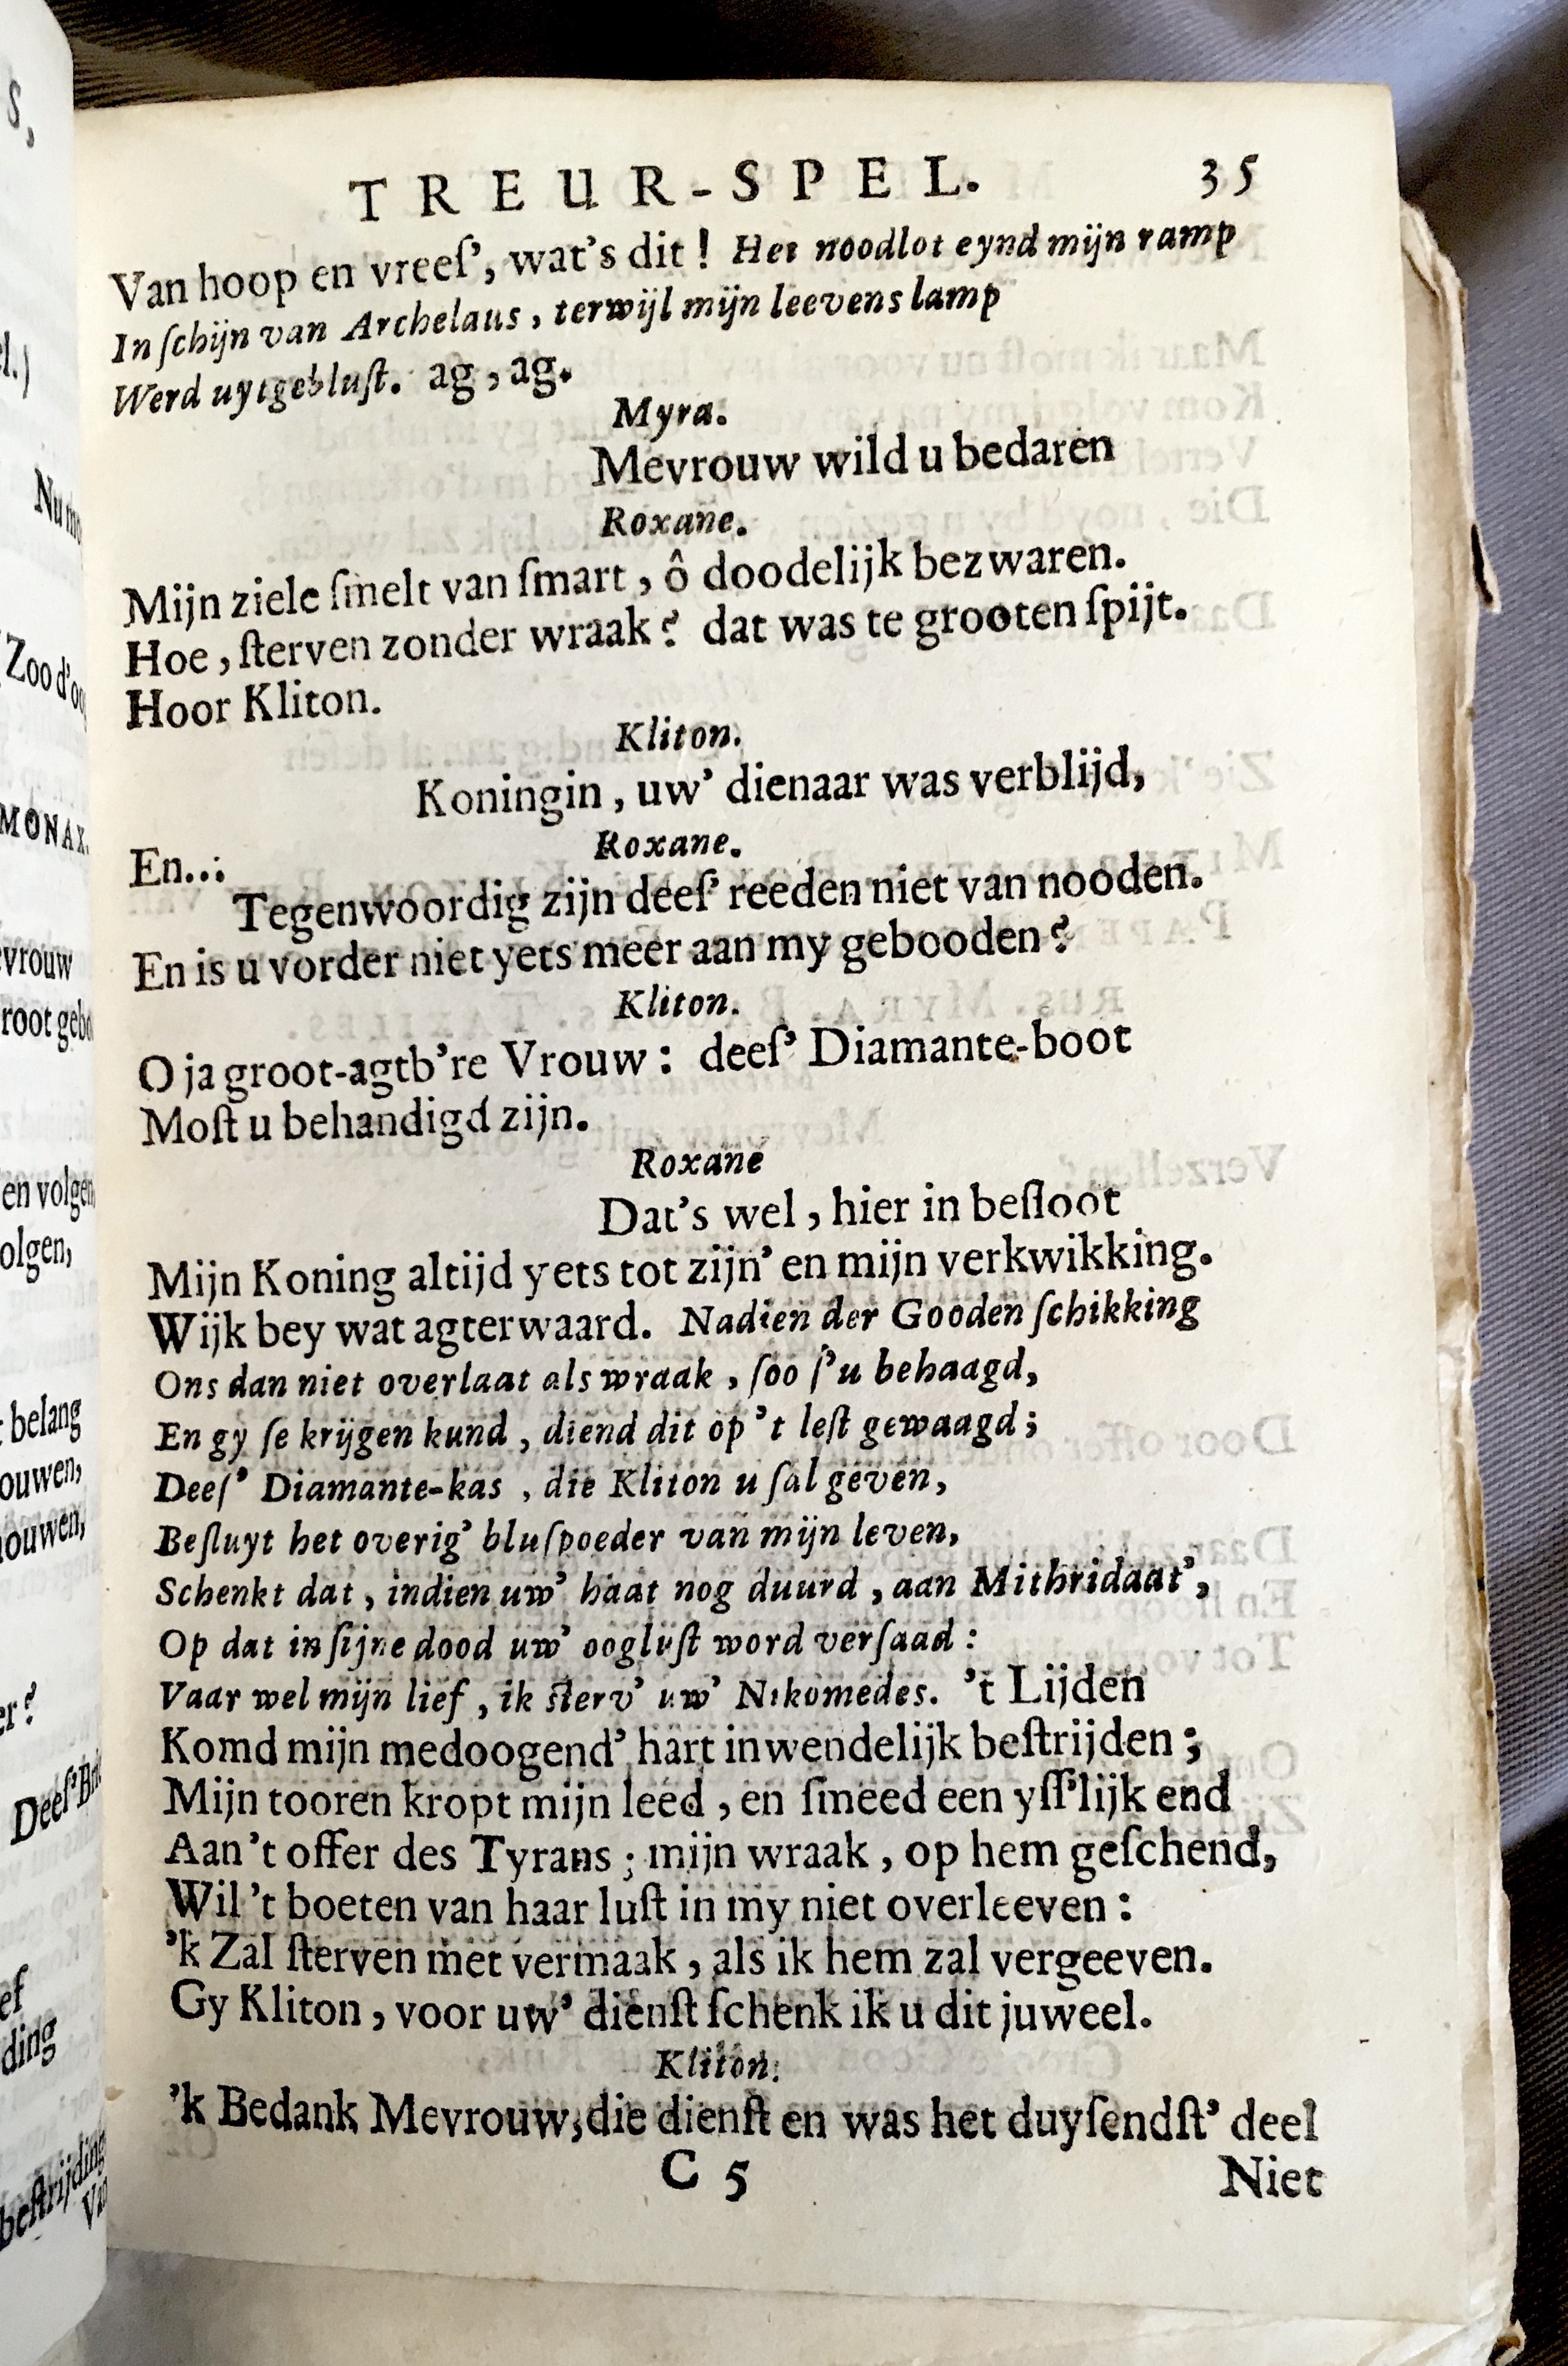 TREUR-SPEL. 35
Van hoop en vreeſ’, wat’s dit! Het noodlot eynd mijn ramp
In ſchijn van Archelaus, terwijl mijn leevens lamp
Werd uytgebluſt. ag, ag.
Myra.
Mevrouw wild u bedaren
Roxane.
Mijn ziele ſmelt van ſmart, ô doodelijk bezwaren.
Hoe, ſterven zonder wraak? dat was te grooten ſpijt.
Hoor Kliton.
Kliton.
Koningin, uw’ dienaar was verblijd,
En...
Roxane.
Tegenwoordig zijn deeſ’ reeden niet van nooden.
En is u vorder niet yets meer aan my gebooden?
Kliton.
O ja groot-agtb’re Vrouw: deeſ’ Diamante-boot
Moſt u behandigd zijn.
Roxane
Dat’s wel, hier in beſloot
Mijn Koning altijd yets tot zijn’ en mijn verkwikking.
Wijk bey wat agterwaard. Nadien der Gooden ſchikking
Ons dan niet overlaat als wraak, ſoo ſ’u behaagd,
En gy ſe krijgen kund, diend dit op ’t leſt gewaagd;
Deeſ’ Diamante-kas, die Kliton u ſal geven,
Beſluyt het overig’ bluſpoeder van mijn leven,
Schenkt dat, indien uw’ haat nog duurd, aan Mithridaat’,
Op dat in ſijne dood uw’ oogluſt word verſaad:
Vaar wel mijn lief, ik ſterv’ uw’ Nikomedes. ’t Lijden
Komd mijn medoogend’ hart inwendelijk beſtrijden;
Mijn tooren kropt mijn leed, en ſmeed een yſſ’lijk end
Aan ’t offer des Tyrans; mijn wraak, op hem geſchend,
Wil ’t boeten van haar luſt in my niet overleeven:
’k Zal ſterven met vermaak, als ik hem zal vergeeven.
Gy Kliton, voor uw’ dienſt ſchenk ik u dit juweel.
Kliton.
’k Bedank Mevrouw, die dienſt en was het duyſendſt’ deel
C 5 Niet